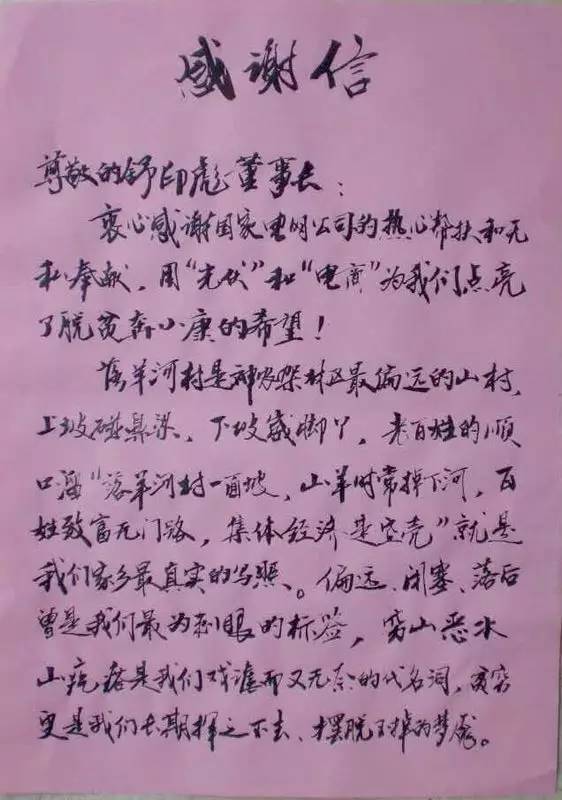 感谢信
尊敬的舒印彪董事长：
衷心感谢国家电网公司的热心帮扶和无
私奉献，用“光伏”和“电商”为我们点亮
了脱贫奔小康的希望！
落羊河村是神农架林区最偏远的山村，
上坡碰鼻梁，下坡蹾脚丫，老百姓的顺
口溜“落羊河村一面坡，山羊时常掉下河，百
姓致富无门路，集体经济是空壳”就是
我们家乡最真实的写照。偏远、闭塞、落后
曾是我们最为刺眼的标签，穷山恶水
山疙瘩是我们戏谑而又无奈的代名词，贫穷
更是我们长期挥之不去、摆脱不掉的梦魇。